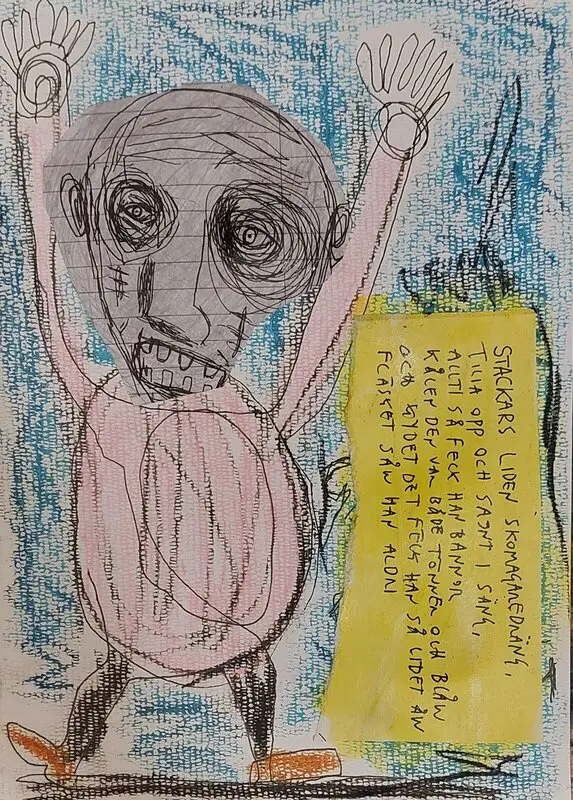 STACKARS LIDEN SKOMAGAREDRÄNG,
TILIA OPP OCH SAJNT I SÄNG,
ALLTI SÅ FECK HAN BANNOR
KÅLEN DEN VAR BÅDE TÖNNER OCH BLÅW
OCH KYDET DET FECK HAN SÅ LIDET ÅW
FLÄSKET SÅW HAN ALDRI